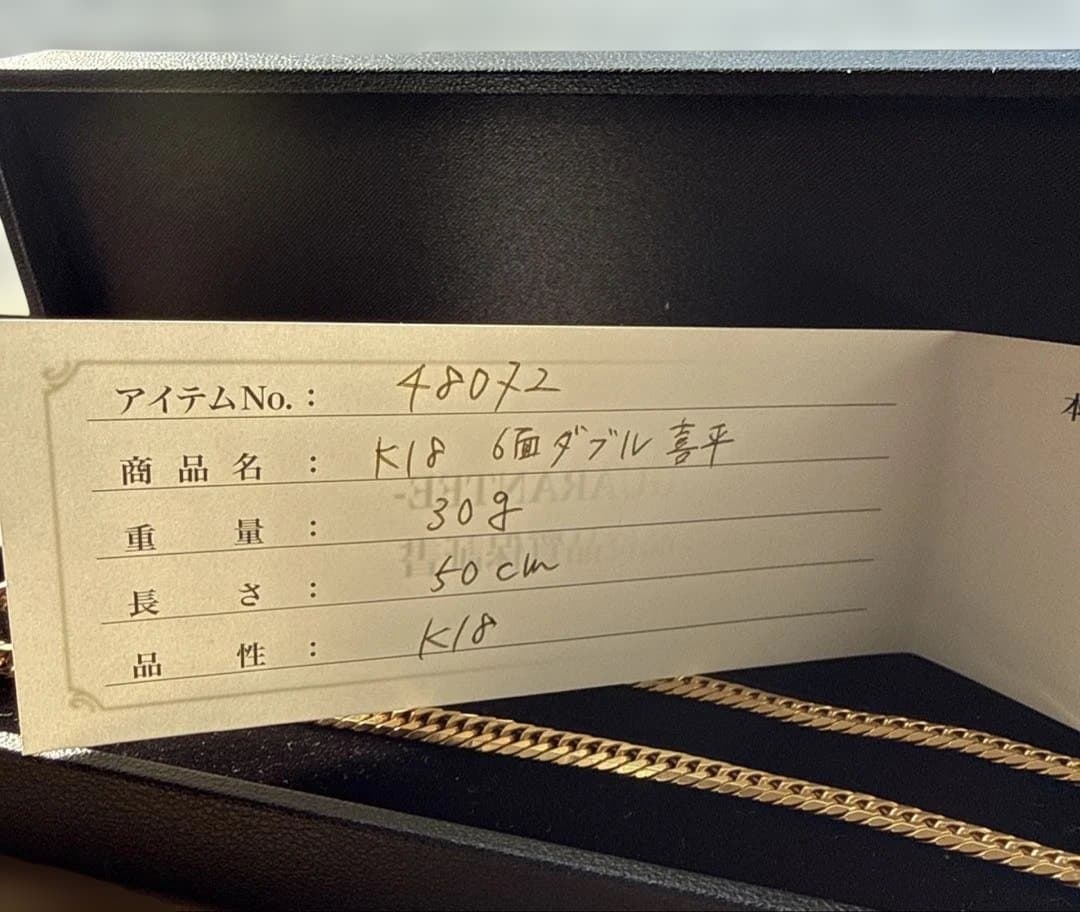 アイテムNo.： 48072
商品名： K18 6面ダブル喜平
重量： 30g
長さ： 50cm
品性： K18
本